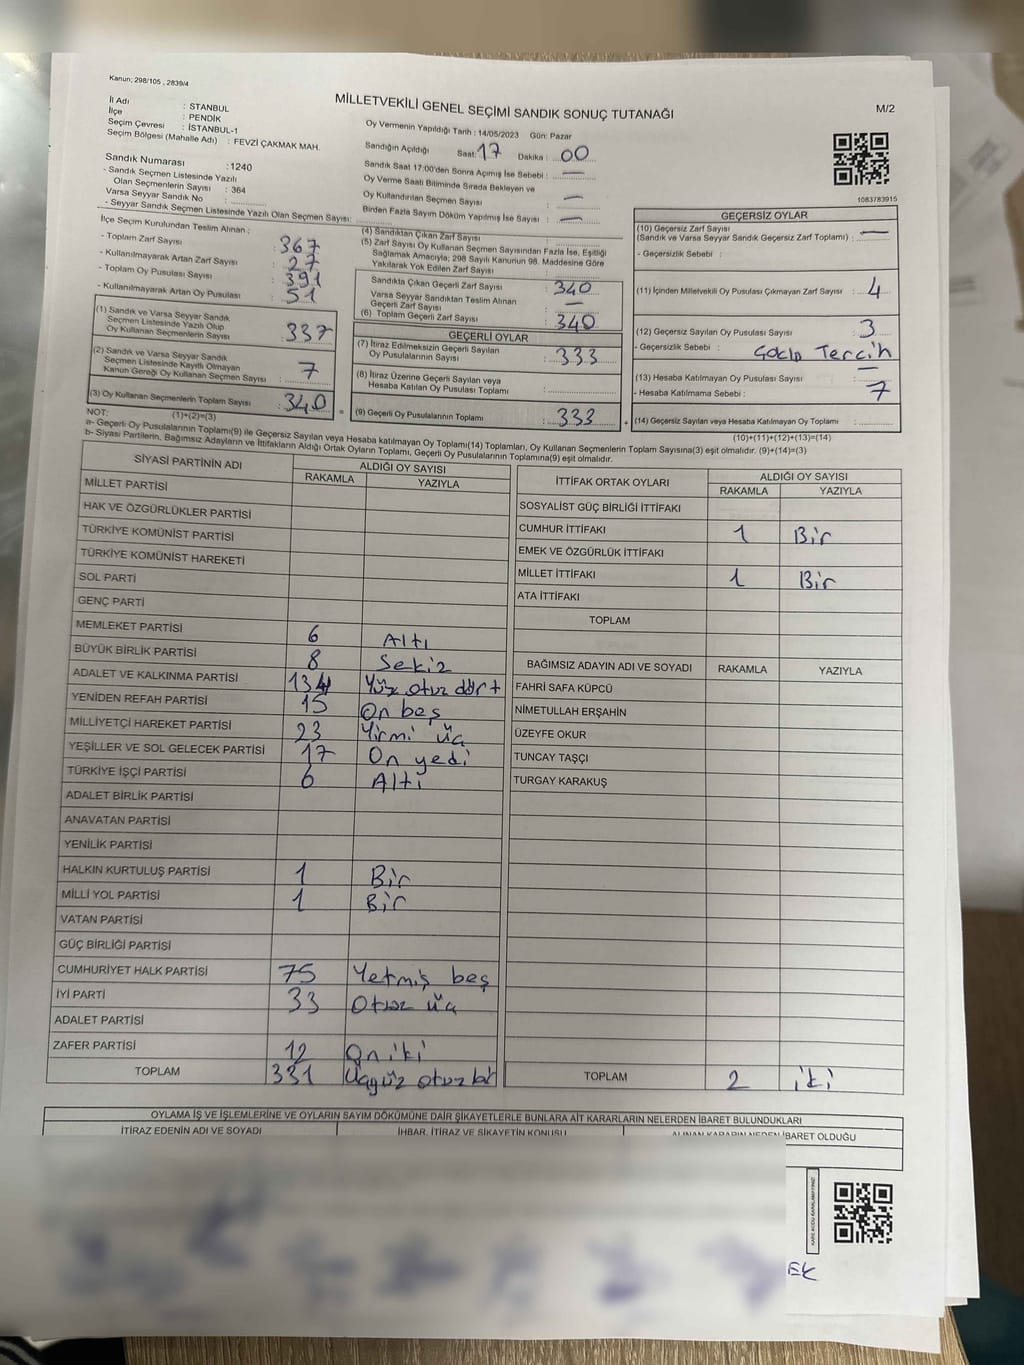 Kanun; 298/105 , 2839/4
MİLLETVEKİLİ GENEL SEÇİMİ SANDIK SONUÇ TUTANAĞI
M/2
İl Adı : STANBUL
İlçe : PENDİK
Seçim Çevresi : İSTANBUL-1
Seçim Bölgesi (Mahalle Adı) : FEVZİ ÇAKMAK MAH.
Sandık Numarası : 1240
- Sandık Seçmen Listesinde Yazılı
Olan Seçmenlerin Sayısı : 364
Varsa Seyyar Sandık No :
- Seyyar Sandık Seçmen Listesinde Yazılı Olan Seçmen Sayısı:
Oy Vermenin Yapıldığı Tarih : 14/05/2023 Gün: Pazar
Sandığın Açıldığı Saat: 17 Dakika : 00
Sandık Saat 17:00'den Sonra Açımış İse Sebebi : —
Oy Verme Saati Bitiminde Sırada Bekleyen ve
Oy Kullandırılan Seçmen Sayısı : —
Birden Fazla Sayım Döküm Yapılmış İse Sayısı : —
1083783915
İlçe Seçim Kurulundan Teslim Alınan :
- Toplam Zarf Sayısı : 367
- Kullanılmayarak Artan Zarf Sayısı : 27
- Toplam Oy Pusulası Sayısı : 391
- Kullanılmayarak Artan Oy Pusulası : 51
(1) Sandık ve Varsa Seyyar Sandık
Seçmen Listesinde Yazılı Olup
Oy Kullanan Seçmenlerin Sayısı : 337
(2) Sandık ve Varsa Seyyar Sandık
Seçmen Listesinde Kayıtlı Olmayan
Kanun Gereği Oy Kullanan Seçmen Sayısı : 7
(3) Oy Kullanan Seçmenlerin Toplam Sayısı : 340
(4) Sandıktan Çıkan Zarf Sayısı :
(5) Zarf Sayısı Oy Kullanan Seçmen Sayısından Fazla İse, Eşitliği
Sağlamak Amacıyla; 298 Sayılı Kanunun 98. Maddesine Göre
Yakılarak Yok Edilen Zarf Sayısı :
Sandıkta Çıkan Geçerli Zarf Sayısı : 340
Varsa Seyyar Sandıktan Teslim Alınan
Geçerli Zarf Sayısı : —
(6) Toplam Geçerli Zarf Sayısı : 340
GEÇERLİ OYLAR
(7) İtiraz Edilmeksizin Geçerli Sayılan
Oy Pusulalarının Sayısı : 333
(8) İtiraz Üzerine Geçerli Sayılan veya
Hesaba Katılan Oy Pusulası Toplamı :
(9) Geçerli Oy Pusulalarının Toplamı : 333
GEÇERSİZ OYLAR
(10) Geçersiz Zarf Sayısı
(Sandık ve Varsa Seyyar Sandık Geçersiz Zarf Toplamı) : —
- Geçersizlik Sebebi :
(11) İçinden Milletvekili Oy Pusulası Çıkmayan Zarf Sayısı : 4
(12) Geçersiz Sayılan Oy Pusulası Sayısı : 3
- Geçersizlik Sebebi : Tercih
(13) Hesaba Katılmayan Oy Pusulası Sayısı : —
- Hesaba Katılmama Sebebi : 7
(14) Geçersiz Sayılan veya Hesaba Katılmayan Oy Toplamı :
NOT: (1)+(2)=(3) (10)+(11)+(12)+(13)=(14)
a- Geçerli Oy Pusulalarının Toplamı(9) ile Geçersiz Sayılan veya Hesaba katılmayan Oy Toplamı(14) Toplamları, Oy Kullanan Seçmenlerin Toplam Sayısına(3) eşit olmalıdır. (9)+(14)=(3)
b- Siyasi Partilerin, Bağımsız Adayların ve İttifakların Aldığı Ortak Oyların Toplamı, Geçerli Oy Pusulalarının Toplamına(9) eşit olmalıdır.
SİYASİ PARTİNİN ADI ALDIĞI OY SAYISI
RAKAMLA YAZIYLA
MİLLET PARTİSİ
HAK VE ÖZGÜRLÜKLER PARTİSİ
TÜRKİYE KOMÜNİST PARTİSİ
TÜRKİYE KOMÜNİST HAREKETİ
SOL PARTİ
GENÇ PARTİ
MEMLEKET PARTİSİ 6 Altı
BÜYÜK BİRLİK PARTİSİ 8 Sekiz
ADALET VE KALKINMA PARTİSİ 134 Yüz otuz dört
YENİDEN REFAH PARTİSİ 15 On beş
MİLLİYETÇİ HAREKET PARTİSİ 23 Yirmi üç
YEŞİLLER VE SOL GELECEK PARTİSİ 17 On yedi
TÜRKİYE İŞÇİ PARTİSİ 6 Altı
ADALET BİRLİK PARTİSİ
ANAVATAN PARTİSİ
YENİLİK PARTİSİ
HALKIN KURTULUŞ PARTİSİ 1 Bir
MİLLİ YOL PARTİSİ 1 Bir
VATAN PARTİSİ
GÜÇ BİRLİĞİ PARTİSİ
CUMHURİYET HALK PARTİSİ 75 Yetmiş beş
İYİ PARTİ 33 Otuz üç
ADALET PARTİSİ
ZAFER PARTİSİ 12 On iki
TOPLAM 331 Üçyüz otuz bir
İTTİFAK ORTAK OYLARI ALDIĞI OY SAYISI
RAKAMLA YAZIYLA
SOSYALİST GÜÇ BİRLİĞİ İTTİFAKI
CUMHUR İTTİFAKI 1 Bir
EMEK VE ÖZGÜRLÜK İTTİFAKI
MİLLET İTTİFAKI 1 Bir
ATA İTTİFAKI
TOPLAM
BAĞIMSIZ ADAYIN ADI VE SOYADI RAKAMLA YAZIYLA
FAHRİ SAFA KÜPCÜ
NİMETULLAH ERŞAHİN
ÜZEYFE OKUR
TUNCAY TAŞÇI
TURGAY KARAKUŞ
TOPLAM 2 iki
OYLAMA İŞ VE İŞLEMLERİNE VE OYLARIN SAYIM DÖKÜMÜNE DAİR ŞİKAYETLERLE BUNLARA AİT KARARLARIN NELERDEN İBARET BULUNDUKLARI
İTİRAZ EDENİN ADI VE SOYADI İHBAR, İTİRAZ VE ŞİKAYETİN KONUSU ALINAN KARARIN NEDEN İBARET OLDUĞU
EK